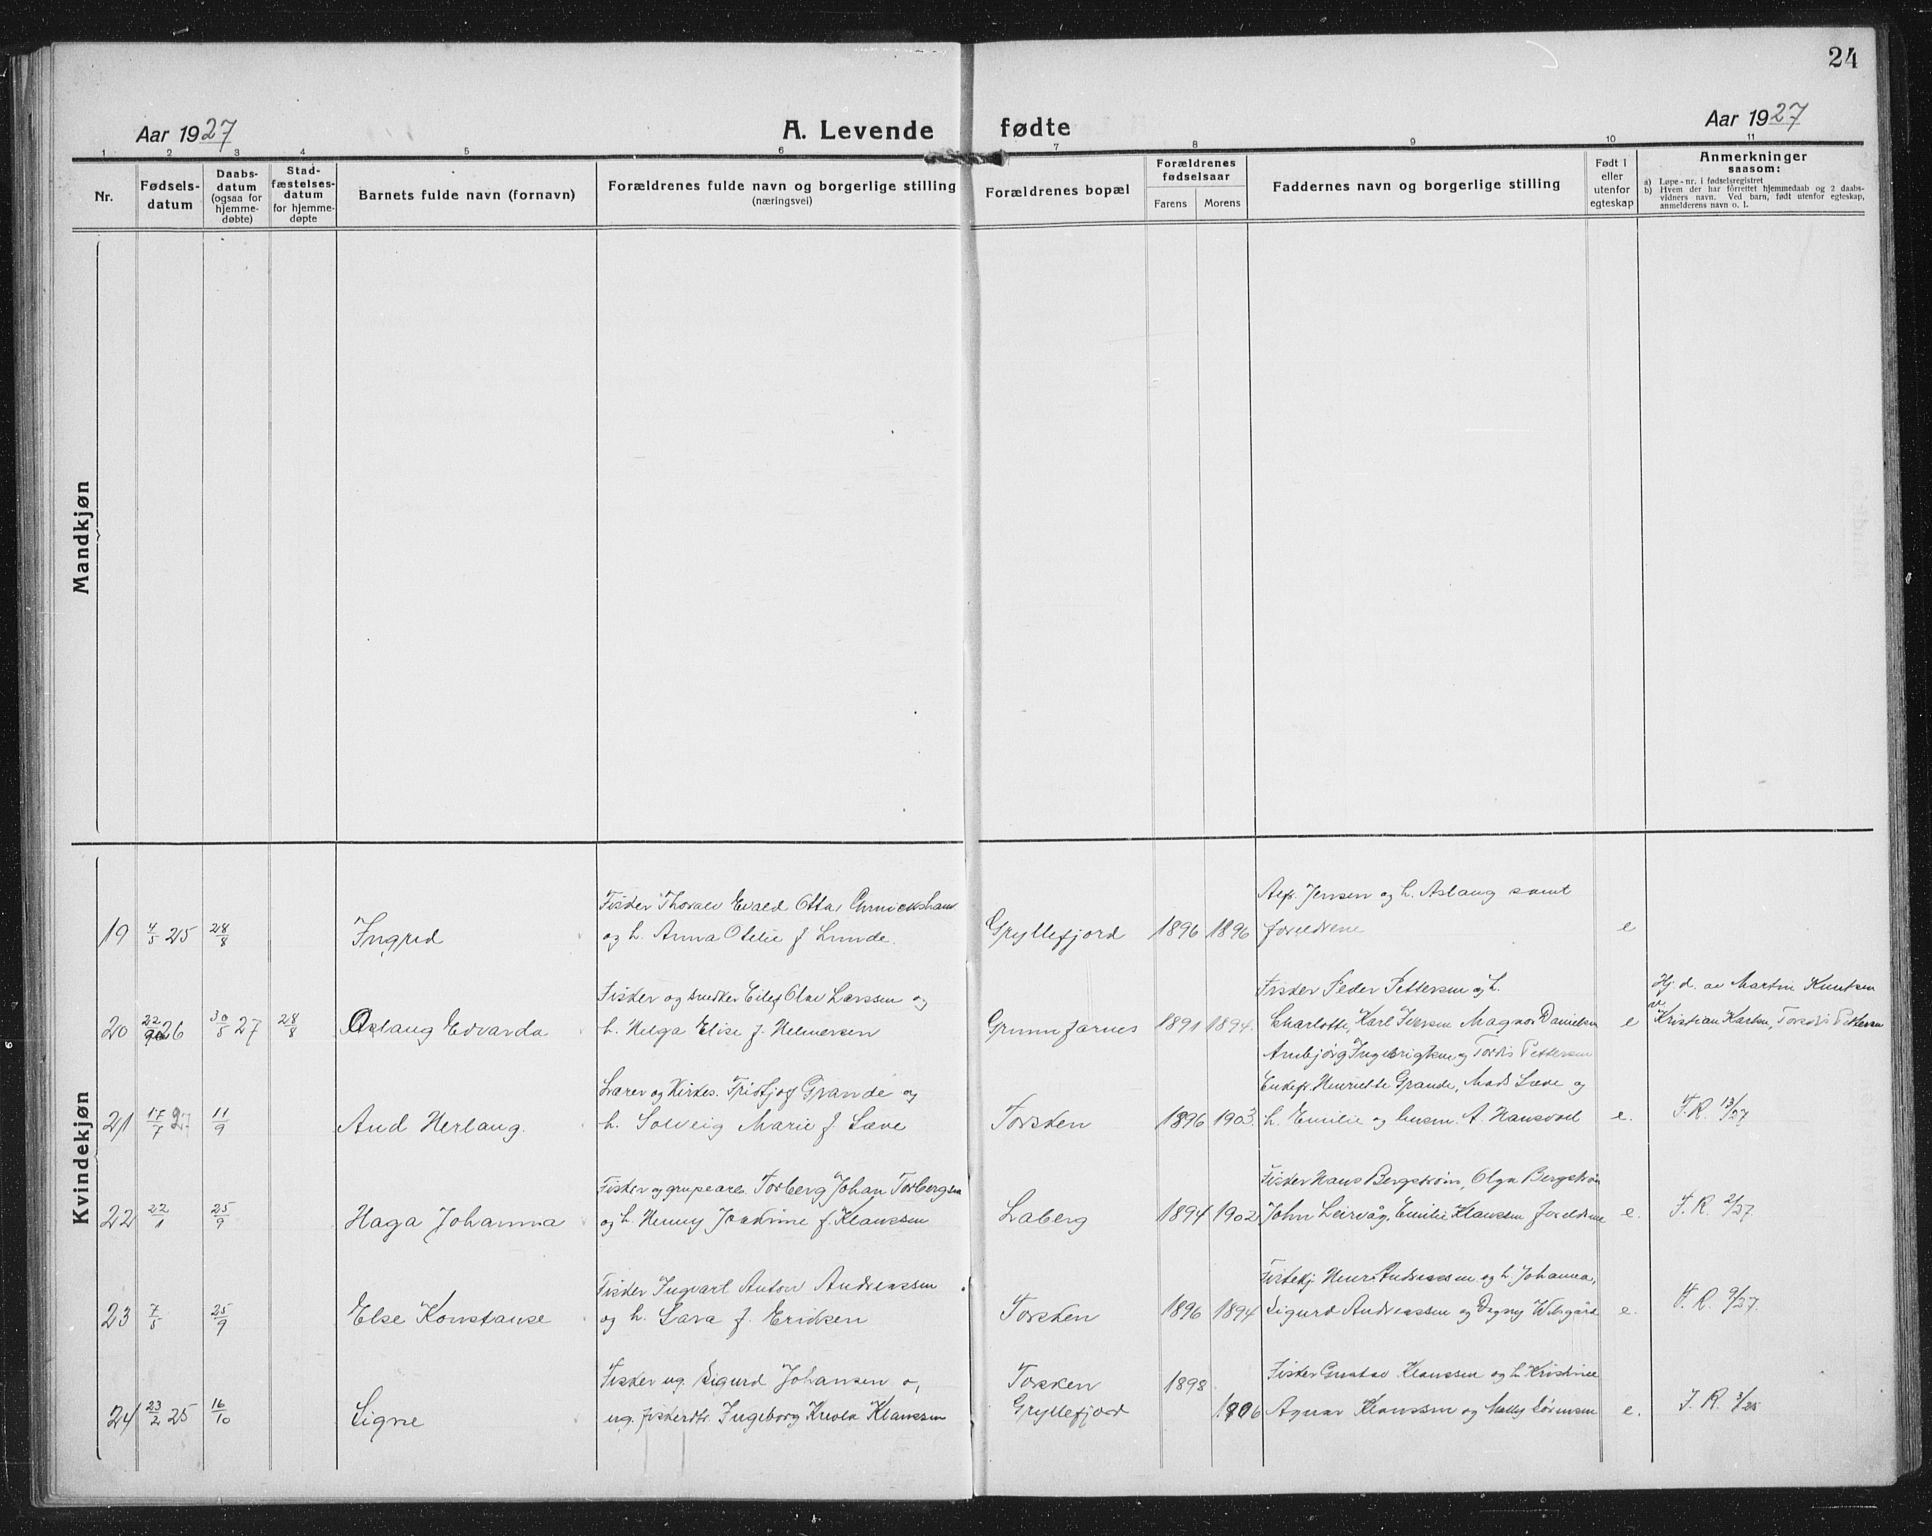 24
Aar 1927
A. Levende fødte
Aar 1927
1 2 3 4 5 6 7 8 9 10 11
Nr.
Fødsels-
datum
Daabs-
datum
(ogsaa for
hjemme-
døbte)
Stad-
fæstelses-
datum
for hjemme-
døpte
Barnets fulde navn (fornavn)
Forældrenes fulde navn og borgerlige stilling
(næringsvei)
Forældrenes bopæl
Forældrenes
fødselsaar
Farens Morens
Faddernes navn og borgerlige stilling
Født i
eller
utenfor
egteskap
Anmerkninger
saasom:
a) Løpe-nr. i fødselsregistret
b) Hvem der har forrettet hjemmedaab og 2 daabs-
vidners navn. Ved barn, født utenfor egteskap,
anmelderens navn o. l.
Mandkjøn
Kvindekjøn
Fisker Thoralv Evald Otta
Jensen og h. Aslaug samt
19 4/5 25 28/8 Ingrid og h. Anna Otelie f. Lunde. Gryllefjord 1896 1896 foreldrene e
Fisker og snedker Eilef Olav Larssen og
Fisker Peder Pettersen og h.
Hj. d. av Martin Knutsen
20 22/9 26 30/5 27 28/8 Aslaug Edvarda h. Helga Elise f. Helmersen Grunnfarnes 1891 1894. Charlotte, Karl Iversen Magnor Danielsen e Kristian Karlsen, Tordis Pettersen
Ambjørg Ingebrigtsen og Tordis Pettersen
Lærer og Kirkes. Fridtjof Grande og
Enkefr. Henriette Grande, Mads Læve og
21 17/7 27 11/9 Aud Herlaug. h. Solveig Marie f. Læve Torsken 1896 1903. h. Emilie og A. Hansvoll e. F.R. 13/27
Fisker og grupearb. Torberg Johan Torbergsen
Fisker Hans Bergstrøm, Olga Bergstrøm
22 22/1 25/9 Haga Johanna og h. Henny Joakrine f. Klaussen Laberg 1894 1902 John Leirvåg, Emilie Klaussen foreldrene e. F.R. 2/27
Fisker Ingvart Anton Andreassen
Andreassen og h. Johanna,
23 7/5 25/9 Else Konstanse og h. Sara f. Eriksen Torsken 1896 1894 Sigurd Andreassen og Dagny e. F.R. 9/27.
Fisker ug. Sigurd Johansen o, Torsken 1898 Fisker Gustav Klaussen og h. Kristine
24 23/2 25 16/10 Signe ug. fiskerdtr. Ingeborg Klaussen Gryllefjord 1906 Agnar Klaussen og Mally Sørensen e. F.R. 3/25